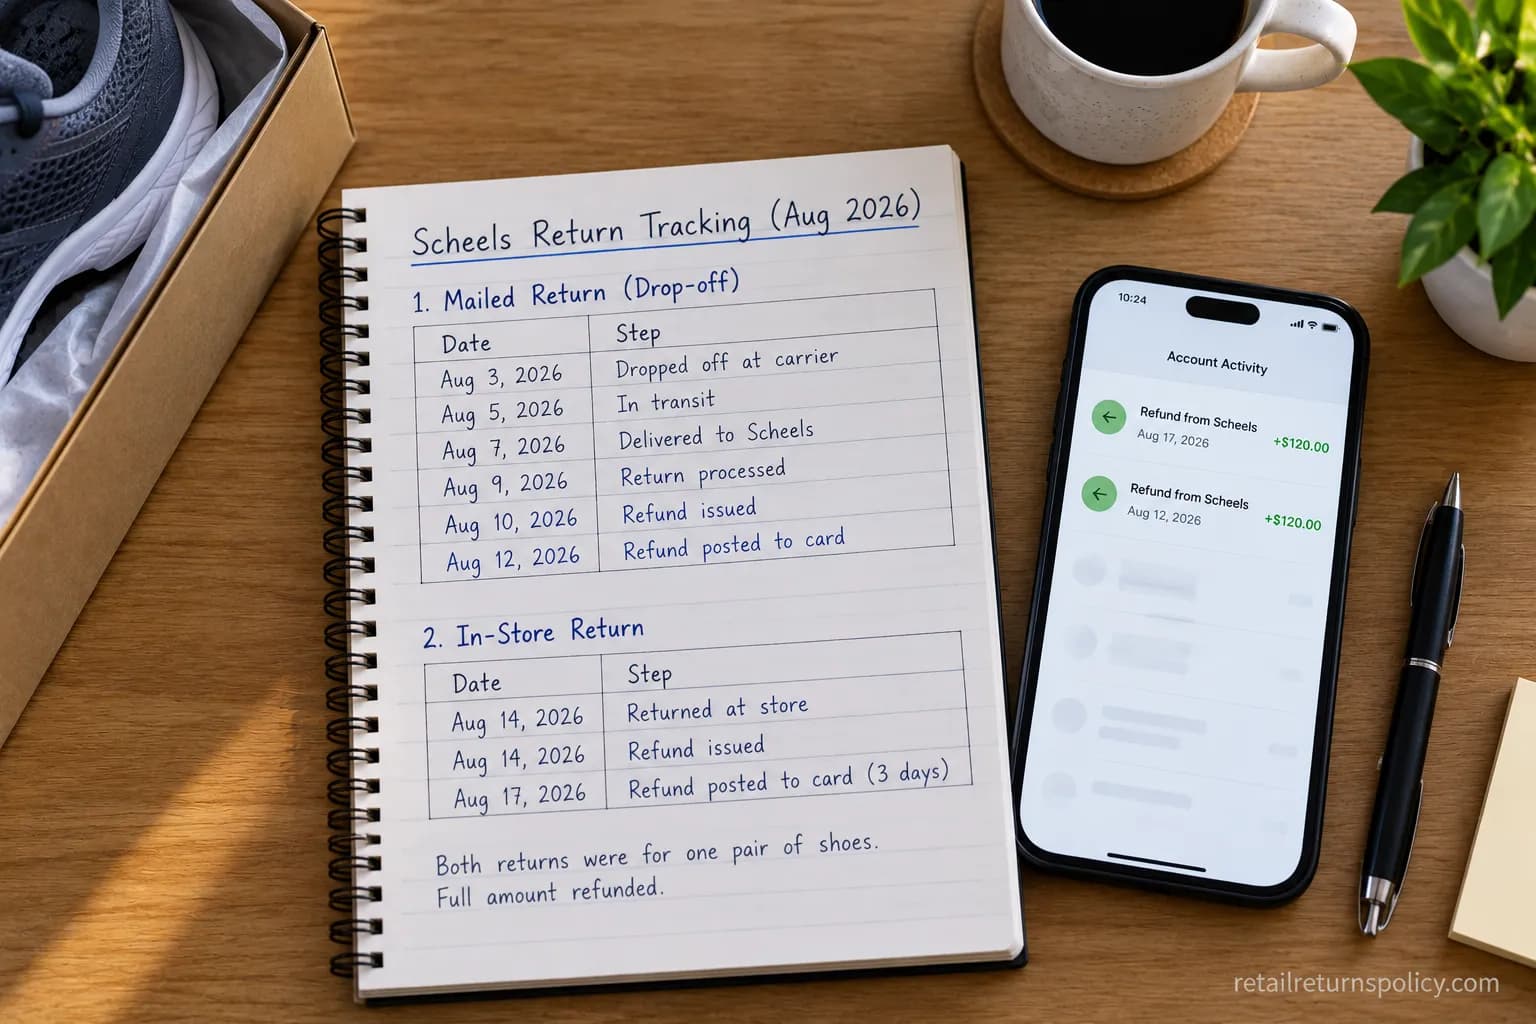 Scheels Return Tracking (Aug 2026)
1. Mailed Return (Drop-off)
Date Step
Aug 3, 2026 Dropped off at carrier
Aug 5, 2026 In transit
Aug 7, 2026 Delivered to Scheels
Aug 9, 2026 Return processed
Aug 10, 2026 Refund issued
Aug 12, 2026 Refund posted to card
2. In-Store Return
Date Step
Aug 14, 2026 Returned at store
Aug 14, 2026 Refund issued
Aug 17, 2026 Refund posted to card (3 days)
Both returns were for one pair of shoes.
Full amount refunded.
10:24
Account Activity
Refund from Scheels
Aug 17, 2026 +$120.00
Refund from Scheels
Aug 12, 2026 +$120.00
retailreturnspolicy.com